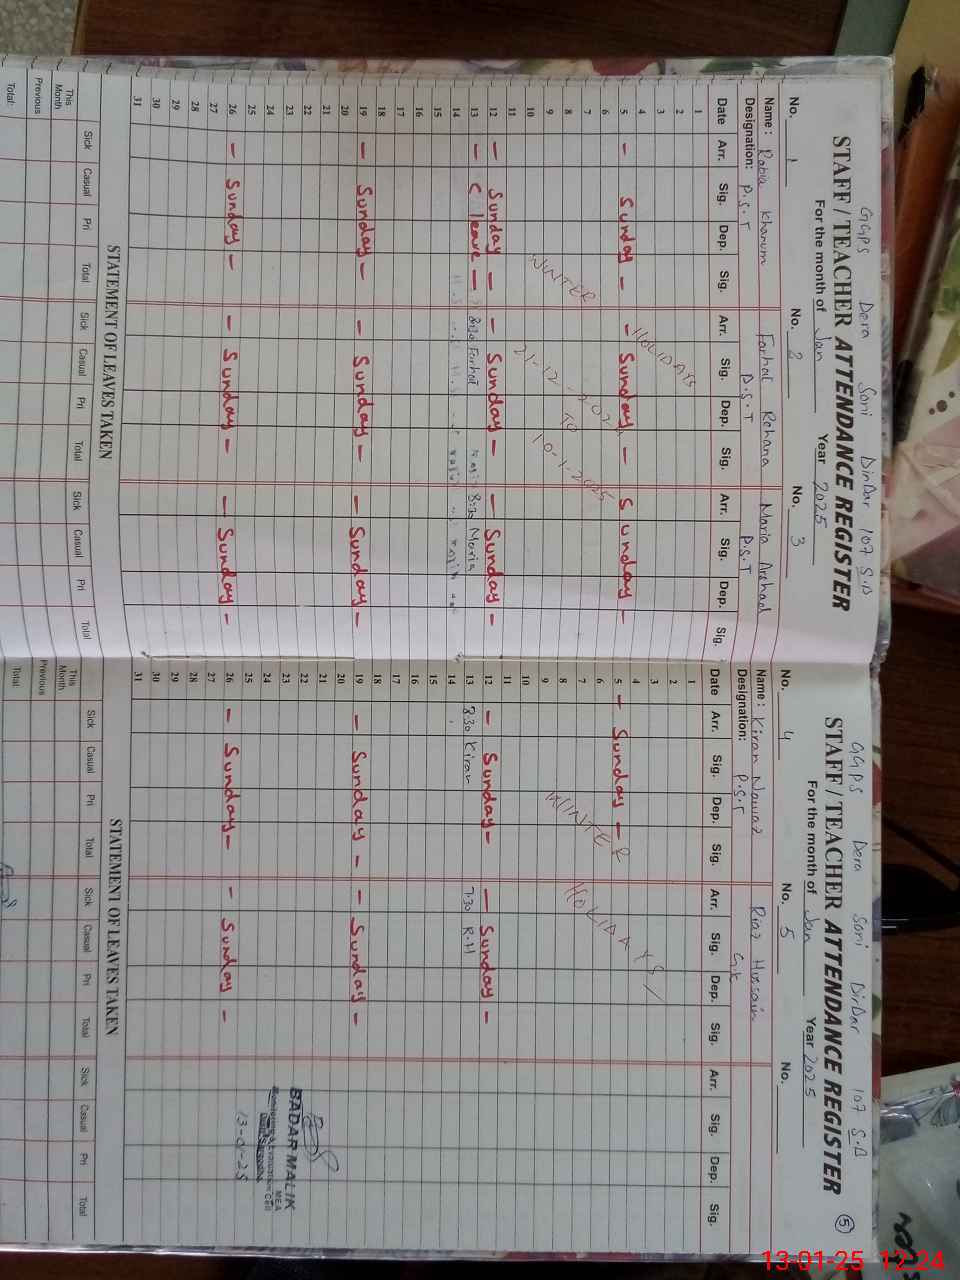 GGPS Dera Soni DirDar 107 S.B
STAFF / TEACHER ATTENDANCE REGISTER
For the month of Jan Year 2025
No. 1 No. 2 No. 3
Name : Rabia Khanum Farhat Rehana Maria Arshad
Designation: P.S.T P.S.T P.S.T
Date Arr. Sig. Dep. Sig. Arr. Sig. Dep. Sig. Arr. Sig. Dep. Sig.
1
2
3
4
5 — Sunday — — Sunday — Sunday —
6
7
8
9
10
11
WINTER HOLIDAYS
21-12-2024
TO
10-1-2025
12 — Sunday — — Sunday — — Sunday —
13 — C leave — 8:30 Farhat 8:30 Maria
14
15
16
17
18
19 — Sunday — — Sunday — — Sunday —
20
21
22
23
24
25
26 — Sunday — — Sunday — — Sunday —
27
28
29
30
31
STATEMENT OF LEAVES TAKEN
Sick Casual Pri Total Sick Casual Pri Total Sick Casual Pri Total
This Month
Previous
Total:
GGPS Dera Soni DirDar 107 S.B
5
STAFF / TEACHER ATTENDANCE REGISTER
For the month of Jan Year 2025
No. 4 No. 5 No.
Name : Kiran Nawaz Riaz Hussain
Designation: P.S.T
Date Arr. Sig. Dep. Sig. Arr. Sig. Dep. Sig. Arr. Sig. Dep. Sig.
1
2
3
4
5 — Sunday —
6
7
8
9
10
11
WINTER HOLIDAYS
12 — Sunday — — Sunday —
13 8:30 Kiran 7:30 R.H
14
15
16
17
18
19 — Sunday — — Sunday —
20
21
22
23
24
25
26 — Sunday — — Sunday —
27
28
29
30
31
BADAR MALIK
MEA
Monitoring & Evaluation Cell
13-01-25
STATEMENT OF LEAVES TAKEN
Sick Casual Pri Total Sick Casual Pri Total Sick Casual Pri Total
This Month
Previous
Total
13-01-25 12:24